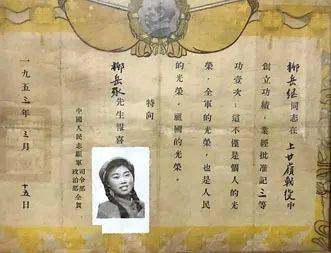 柳岳继同志在上甘嶺戰役中
創立功績，業經批准記三等
功壹次；這不僅是個人的光
榮，全軍的光榮，也是人民
的光榮，祖國的光榮。
特向
柳岳先生報喜
中國人民志願軍司令部政治部仝賀
一九五三年三月十五日